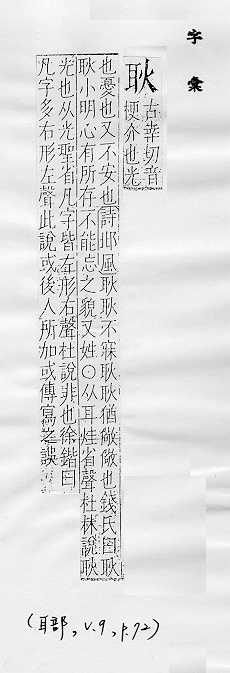 字彙
耿
古幸切音
梗介也光
也憂也又不安也詩邶風耿耿不寐耿耿猶儆儆也錢氏曰耿
耿小明心有所存不能忘之貌又姓○从耳烓省聲杜林說耿
光也从光聖省凡字皆左形右聲杜說非也徐鍇曰
凡字多右形左聲此說或後人所加或傳寫之誤
(耳部, v.9, p.92)